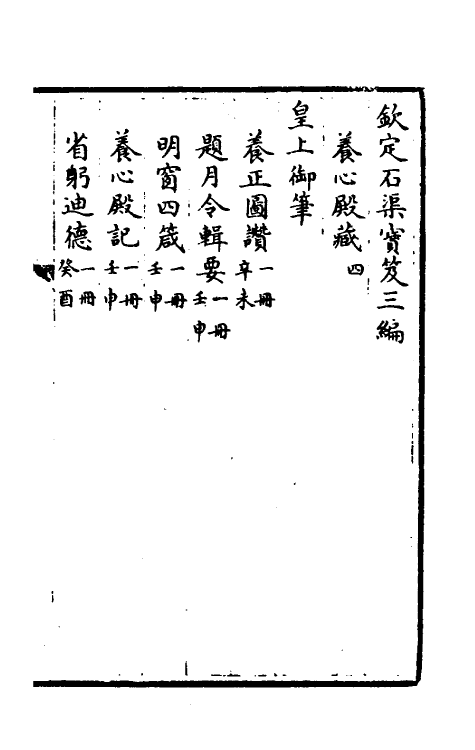 欽定石渠寶笈三編
養心殿藏四
皇上御筆
養正圖讚一冊辛未
題月令輯要一冊壬申
明窗四箴一冊壬申
養心殿記一冊壬申
省躬迪德一冊癸酉